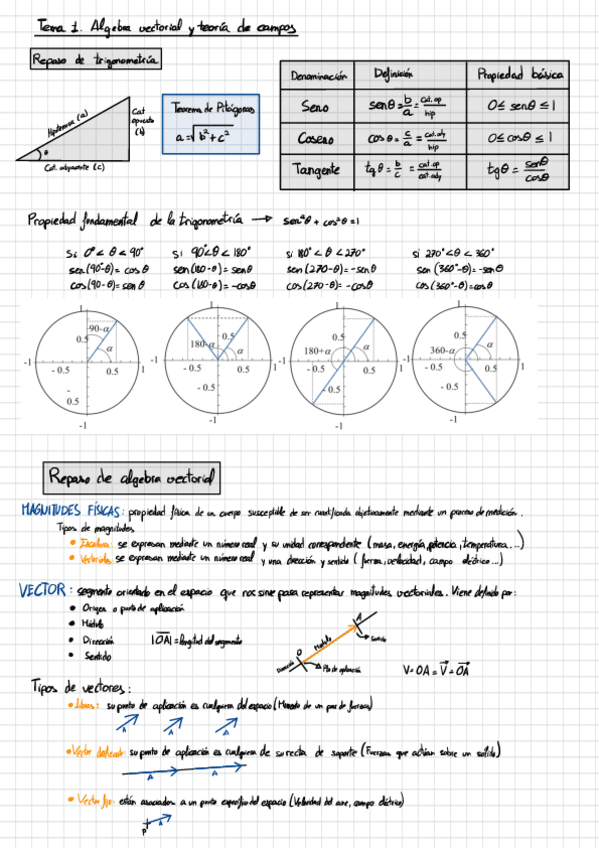 Tema 1. Algebra vectorial y teoría de campos
Repaso de trigonometría
Hipotenusa (a)
Cat opuesto (b)
θ
Cat. adyacente (c)
Teorema de Pitágoras
a = √b² + c²
Denominación Definición Propiedad básica
Seno senθ = b/a = cat. op/hip 0 ≤ senθ ≤ 1
Coseno cosθ = c/a = cat. ady/hip 0 ≤ cosθ ≤ 1
Tangente tgθ = b/c = cat. op/cat. ady tgθ = senθ/cosθ
Propiedad fundamental de la trigonometría → sen²θ + cos²θ = 1
Si 0° < θ < 90°
sen(90-θ) = cosθ
cos(90-θ) = senθ
Si 90° < θ < 180°
sen(180-θ) = senθ
cos(180-θ) = -cosθ
si 180° < θ < 270°
sen(270-θ) = -senθ
cos(270-θ) = -cosθ
si 270° < θ < 360°
sen(360°-θ) = -senθ
cos(360°-θ) = cosθ
1
90-α
0.5
α
-1
- 0.5
0.5
1
- 0.5
-1
1
180-α
0.5
α
-1
- 0.5
0.5
1
- 0.5
-1
1
180+α
0.5
α
-1
- 0.5
0.5
1
- 0.5
-1
1
360-α
0.5
α
-1
- 0.5
0.5
1
- 0.5
-1
Repaso de algebra vectorial
MAGNITUDES FÍSICAS: propiedad física de un cuerpo susceptible de ser cuantificada objetivamente mediante un proceso de medición.
Tipos de magnitudes
• Escalares: se expresan mediante un número real y su unidad correspondiente (masa, energía, potencia, temperatura...)
• Vectoriales: se expresan mediante un número real y una dirección y sentido (fuerza, velocidad, campo eléctrico...)
VECTOR: segmento orientado en el espacio que nos sirve para representar magnitudes vectoriales. Viene definido por:
• Origen o punto de aplicación
• Módulo
• Dirección |OA| = longitud del segmento
• Sentido
A
Sentido
Módulo
O
Dirección
Pto de aplicación
V = OA = V = OA
Tipos de vectores:
• Libres: su punto de aplicación es cualquiera del espacio (Momento de un par de fuerzas)
A A A
• Vector deslizante: su punto de aplicación es cualquiera de su recta de soporte (Fuerzas que actúan sobre un sólido)
A A
• Vector fijo: están asociados a un punto específico del espacio (Velocidad del aire, campo eléctrico)
P A